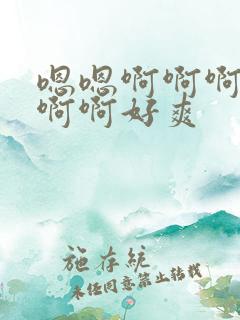 嗯嗯啊啊啊
啊啊好爽
施存統
未经同意禁止转载